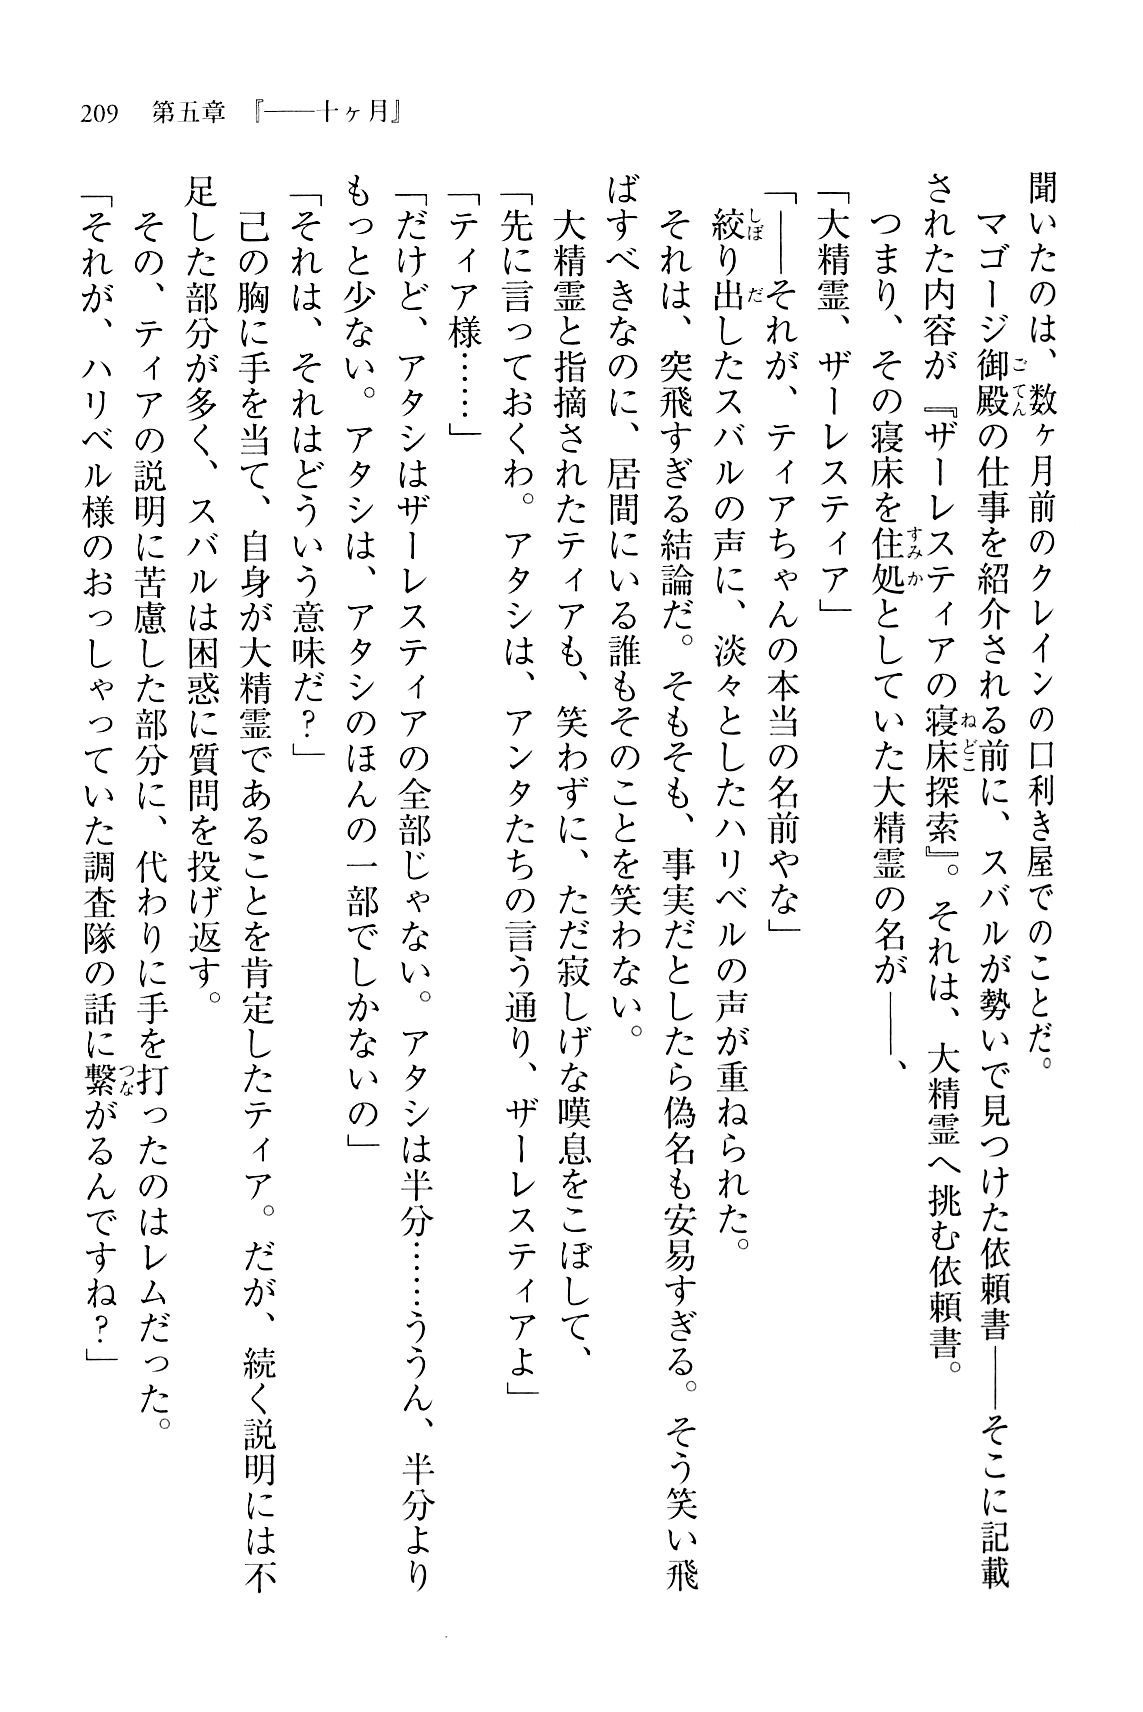 209　第五章　『――十ヶ月』
聞いたのは、数ヶ月前のクレインの口利き屋でのことだ。
　マゴージ御殿の仕事を紹介される前に、スバルが勢いで見つけた依頼書――そこに記載
された内容が『ザーレスティアの寝床探索』。それは、大精霊へ挑む依頼書。
　つまり、その寝床を住処としていた大精霊の名が――、
「大精霊、ザーレスティア」
「――それが、ティアちゃんの本当の名前やな」
　絞り出したスバルの声に、淡々としたハリベルの声が重ねられた。
　それは、突飛すぎる結論だ。そもそも、事実だとしたら偽名も安易すぎる。そう笑い飛
ばすべきなのに、居間にいる誰もそのことを笑わない。
　大精霊と指摘されたティアも、笑わずに、ただ寂しげな嘆息をこぼして、
「先に言っておくわ。アタシは、アンタたちの言う通り、ザーレスティアよ」
「ティア様……」
「だけど、アタシはザーレスティアの全部じゃない。アタシは半分……ううん、半分より
もっと少ない。アタシは、アタシのほんの一部でしかないの」
「それは、それはどういう意味だ？」
　己の胸に手を当て、自身が大精霊であることを肯定したティア。だが、続く説明には不
足した部分が多く、スバルは困惑に質問を投げ返す。
　その、ティアの説明に苦慮した部分に、代わりに手を打ったのはレムだった。
「それが、ハリベル様のおっしゃっていた調査隊の話に繋がるんですね？」